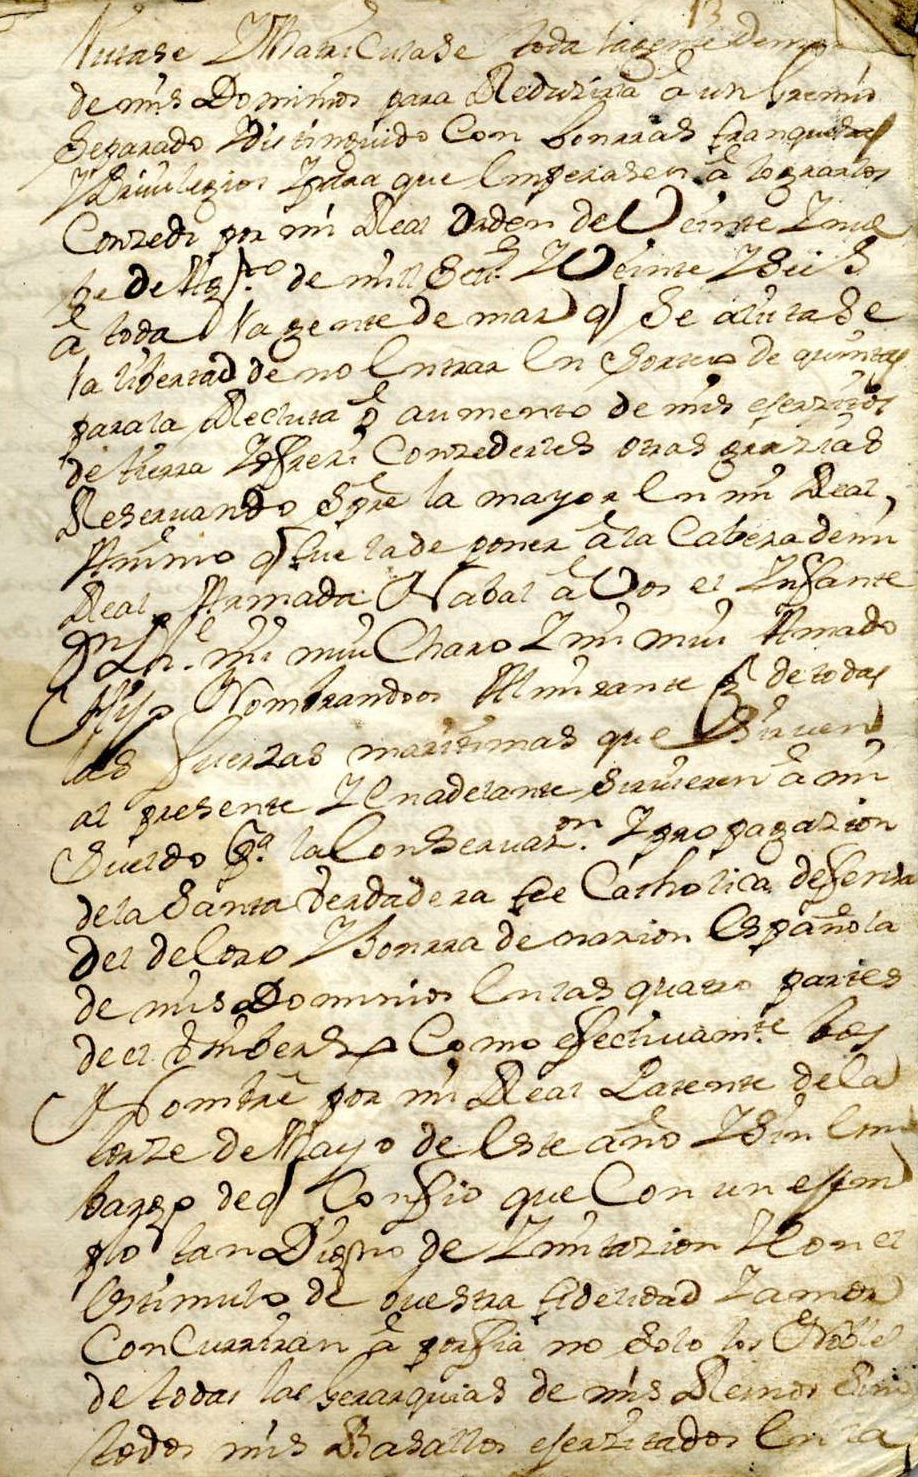 13
listase Y Matriculase toda la gente de mar
de mis Dominios para Reduzirla à un Gremio
Separado Y distinguido Con honrras franquezas
Y Privilegios Y para que empezasen à lograrlos
Conzedi por mi Real Orden de Veinte Y nue
be de Agto de mill Setts Y Veinte Y Seis
à toda la gente de mar q Se alistase
la libertad de no entrar en Sorteo de quintas
para la Recluta ò aumento de mis exerzitos
de tierra Y ofreri Conzederles otras grazias
Reservando Spre la mayor en mi Real
Animo q fue la de poner à la Cabeza de mi
Real Armada Nabal à Vos el Infante
Dn Phe mi mui Charo Y mi mui Amado
Hijo Nombrandoos Almirante Gl de todas
las fuerzas maritimas que Sirven
al presente Y en adelante Sirvieren à mi
Sueldo Pa la Conservazon Y propagazion
de la Santa Verdadera fee Catholica defensa
del decoro Y honrra de nazion Española
de mis Dominios en las quatro partes
de el Vniberso Como efectivamte bos
Nombre por mi Real Patente de Ca
torze de Mayo de este año Y Sin em
bargo de q Confio que Con un exem
plo tan Digno de Ymitazion Y Con el
estimulo de vuestra fidelidad Y amor
Concurriran à porfia no Solo los Nobles
de todas las Gerarquias de mis Reinos Sino
todos mis Basallos exerzitados en la